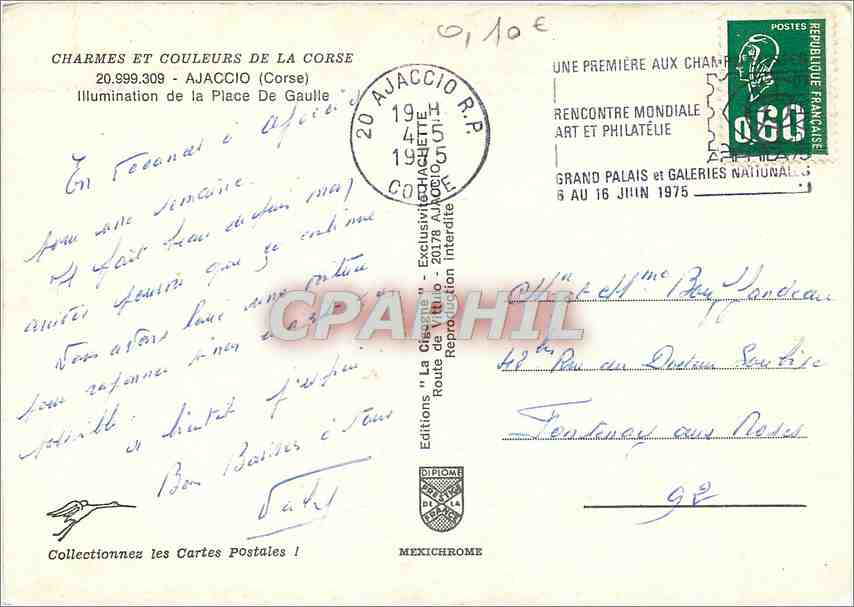 0,10€
CHARMES ET COULEURS DE LA CORSE
20.999.309 - AJACCIO (Corse)
Illumination de la Place De Gaulle
En vacances à Ajaccio
pour une semaine.
Il fait beau depuis mon
arrivée pourvu que ça continue
Nous avons loué une voiture
pour
possible. à bientôt j'espère
Bons Baisers à tous
20 AJACCIO R.P.
19 H
4-5
1975
CORSE
UNE PREMIÈRE AUX CHAMPS
RENCONTRE MONDIALE
ART ET PHILATÉLIE
ARPHILA 75
GRAND PALAIS et GALERIES NATIONALES
6 AU 16 JUIN 1975
POSTES
REPUBLIQUE FRANÇAISE
0,60
Editions "La Cigogne" - Exclusivité HACHETTE
Route de Vittulo - 20178 AJACCIO
Reproduction interdite
CPAPHIL
Mr et Mme
48 bis Rue du Docteur Soubise
Fontenay aux Roses
92
DIPLOME
PRESTIGE
DE LA
FRANCE
MEXICHROME
Collectionnez les Cartes Postales !